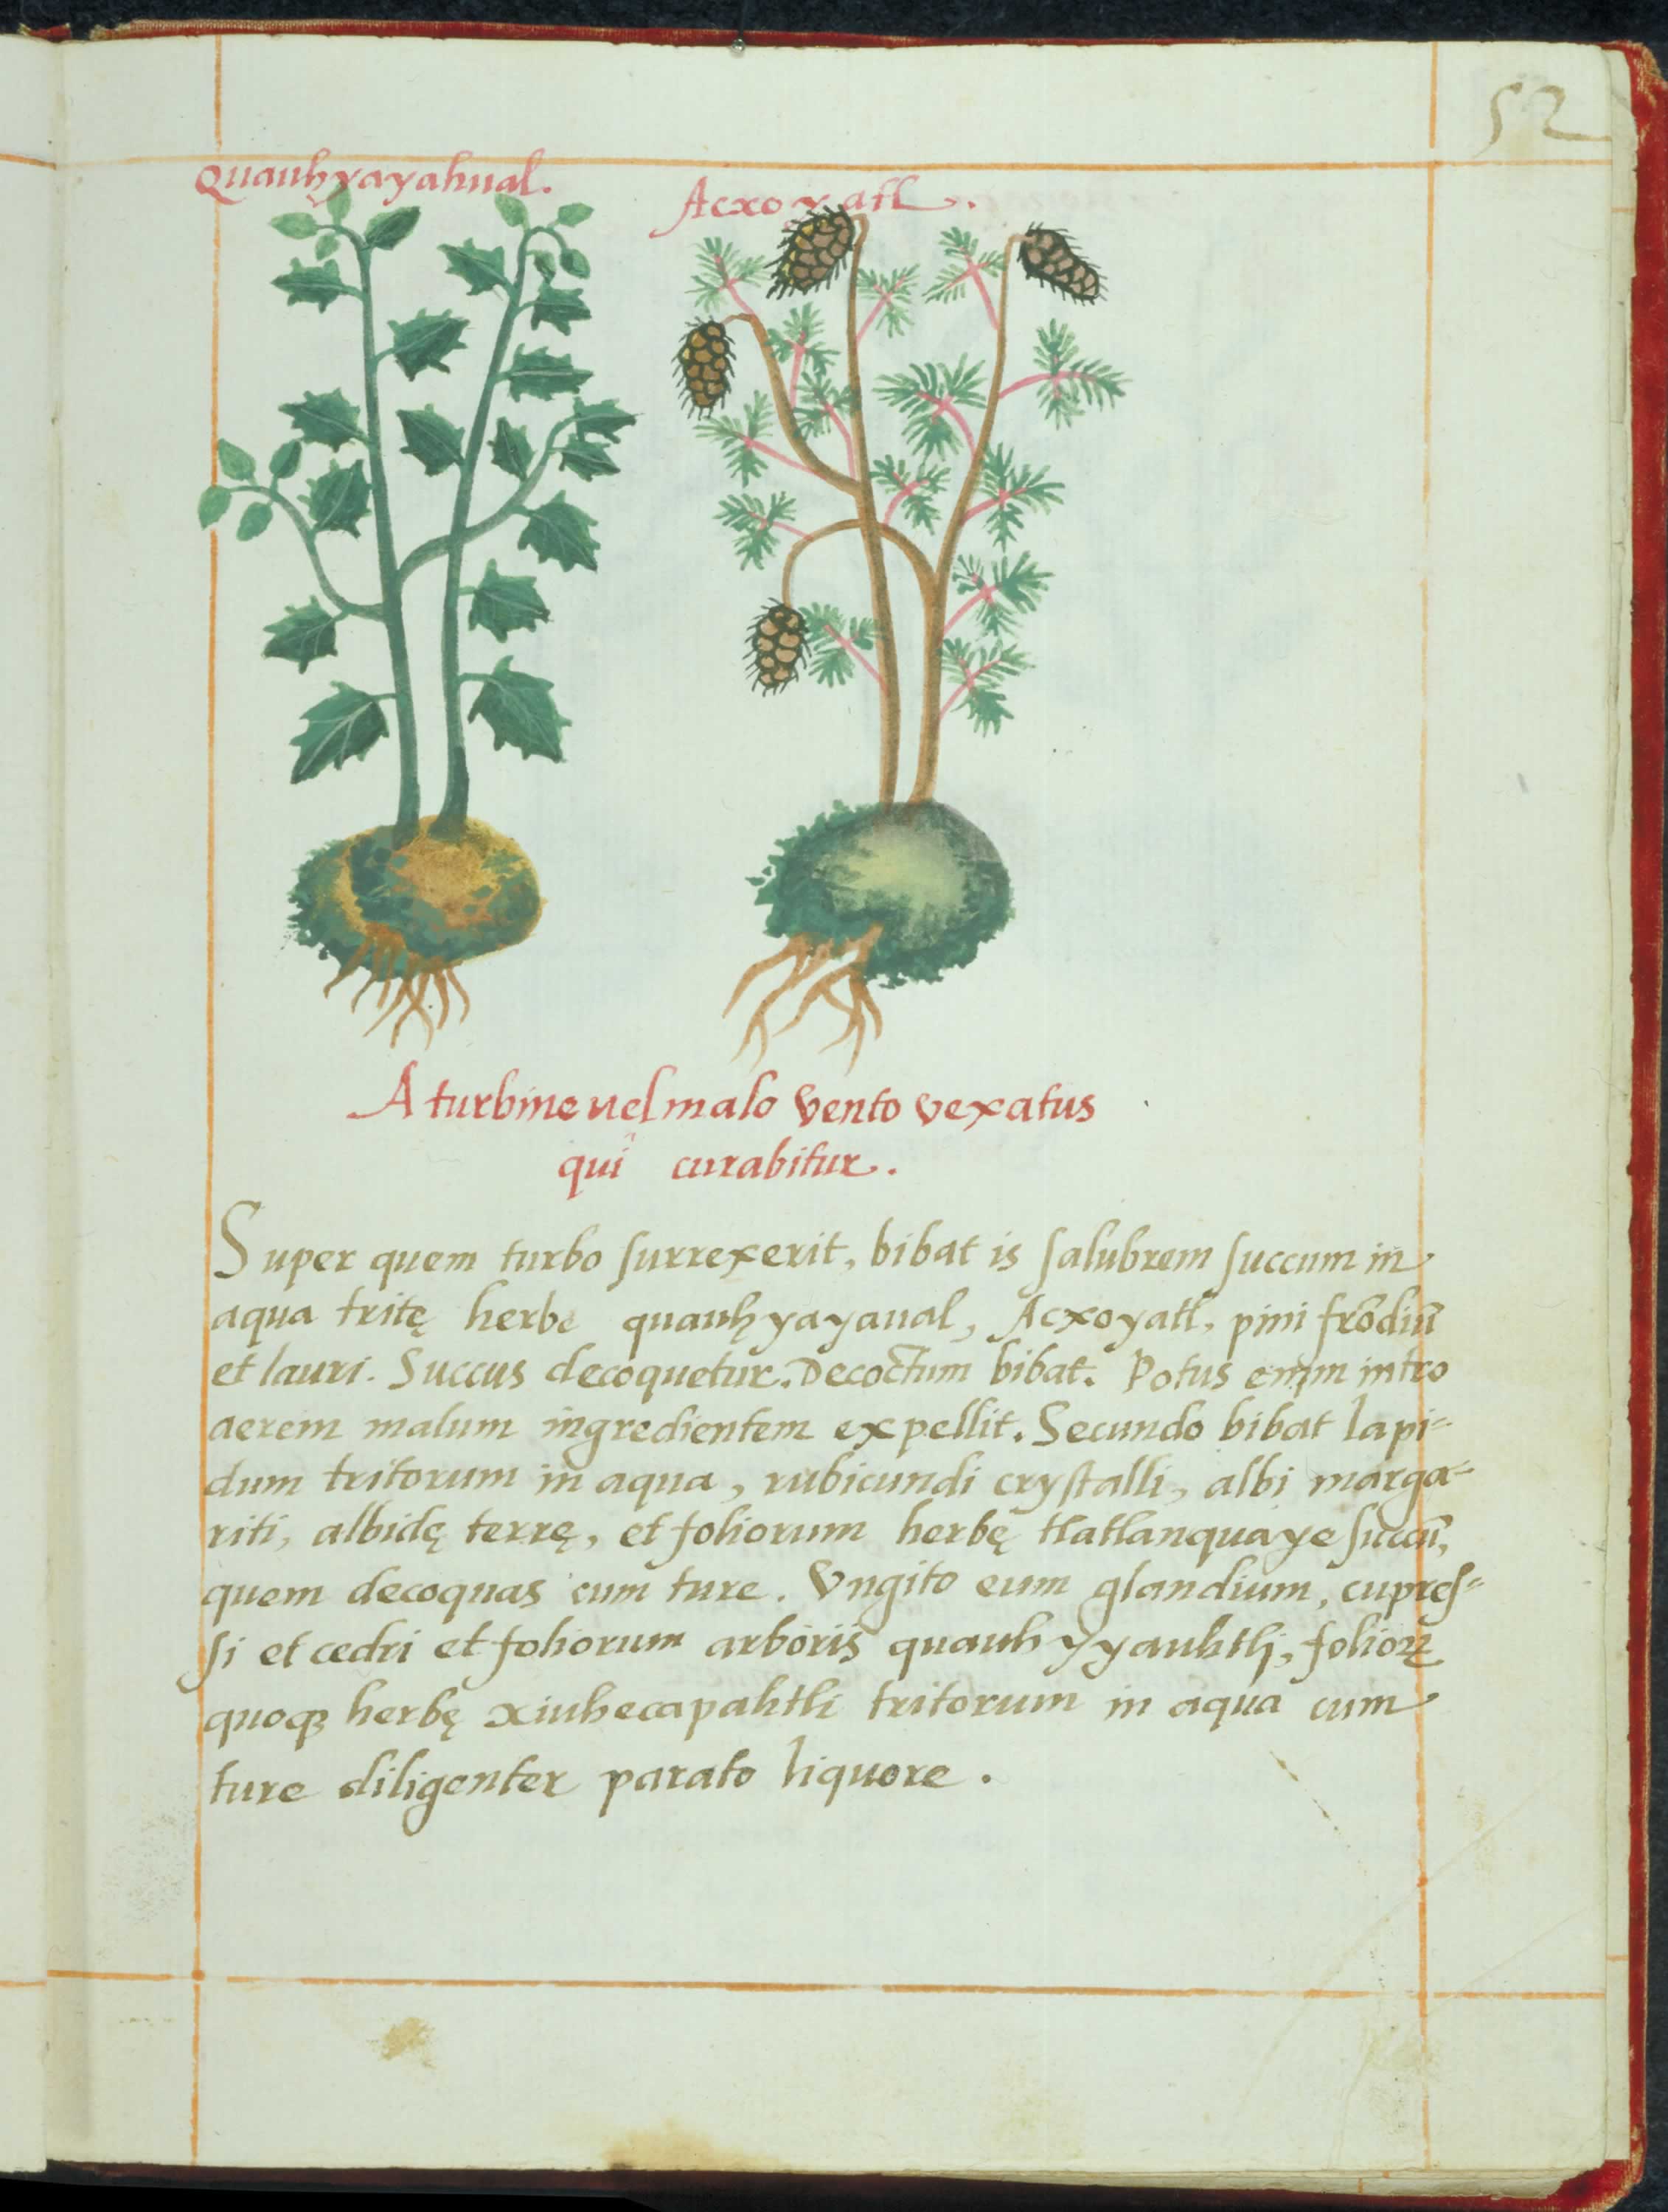 52
Quauhyayahual.
Acxoyatl.
A turbine uel malo vento vexatus
qui curabitur.
Super quem turbo ſurrexerit, bibat is ſalubrem ſuccum in
aqua tritę herbę quauhyayaual, Acxoyatl, pini frōdiū
et lauri. Succus decoquetur. Decoctum bibat. Potus enim intro
aerem malum ingredientem expellit. Secundo bibat lapi=
dum tritorum in aqua, rubicundi cryſtalli, albi marga=
riti, albidę terrę, et foliorum herbę tlatlanquaye ſuccū,
quem decoquas cum ture. Vngito eum glandium, cupreſ=
ſi et cedri et foliorum arboris quauhyyauhtli, folioꝝ
quoqꝫ herbę xiuhecapahtli tritorum in aqua cum
ture diligenter parato liquore.